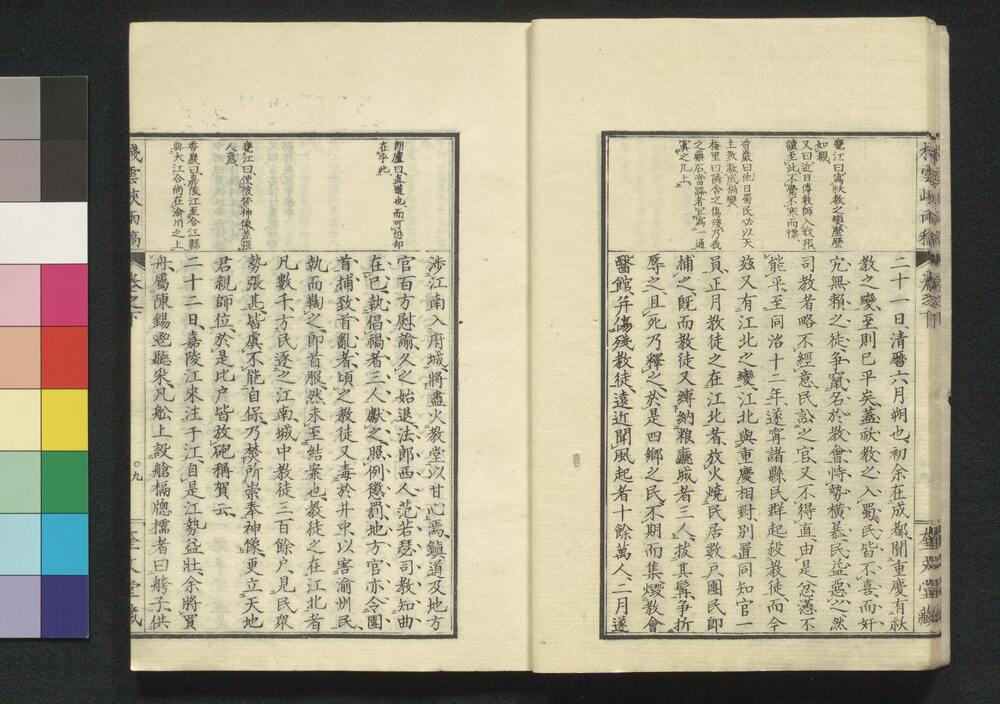 棧雲峽雨稿
卷之下
奎文堂藏
甕江曰寫祅教之變歷歷
如覩
又曰近日傳教師入我邦
讀至此不覺不寒而慄
香巖曰他日蜀民必以天
主敎激成禍變
梅里曰隣舍之傷殘乃我
之藥石當路者宜寫一通
寘之几上
二十一日、清曆六月朔也、初余在成都、聞重慶有祅
教之變、至則已平矣、蓋祅教之入蜀、民皆不喜、而奸
宄無賴之徒、爭竄名於教會、恃勢橫暴、民益惡之、然
司教者略不經意、民訟之官、又不得直、由是忿懣不
能平、至同治十二年、遂寧諸縣民群起殺教徒、而今
玆又有江北之變、江北與重慶相對、別置同知官一
員、正月教徒之在江北者、放火燒民居數戶、團民即
捕之、既而教徒又縛納粮廳城者三人、拔其髯、爭折
辱之、且死乃釋之、於是四鄉之民、不期而集、燬教會
醫館、并傷殘教徒、遠近聞風起者十餘萬人、二月遂
朗廬曰直道也而可怨却
在乎此
甕江曰使彼祭神像差强
人意
香巖曰嘉陵江至合江縣
與大江合尚在渝州之上
涉江南入府城、將盡火教堂以甘心焉、鎮道及地方
官百方慰諭久之始退、法郎西人范若瑟、司教知曲
在己、執倡禍者三人獻之、照例懲罰、地方官亦令團
首捕致首亂者、頃之教徒又毒於井中、以害渝州民、
執而鞫之、即首服、然未至結案也、教徒之在江北者
凡數千、方民逐之江南、城中教徒三百餘戶、見民眾
勢張甚、皆虞不能自保、乃焚所崇奉神像、更立天地
君親師位、於是比戶皆放砲稱賀云、
二十二日、嘉陵江來注于江、自是江勢益壯、余將買
舟、屬陳錫鬯聽來、凡舩上設艙槅牎檽者曰艕子、供
棧雲峽雨稿
卷之下
○九
奎文堂藏